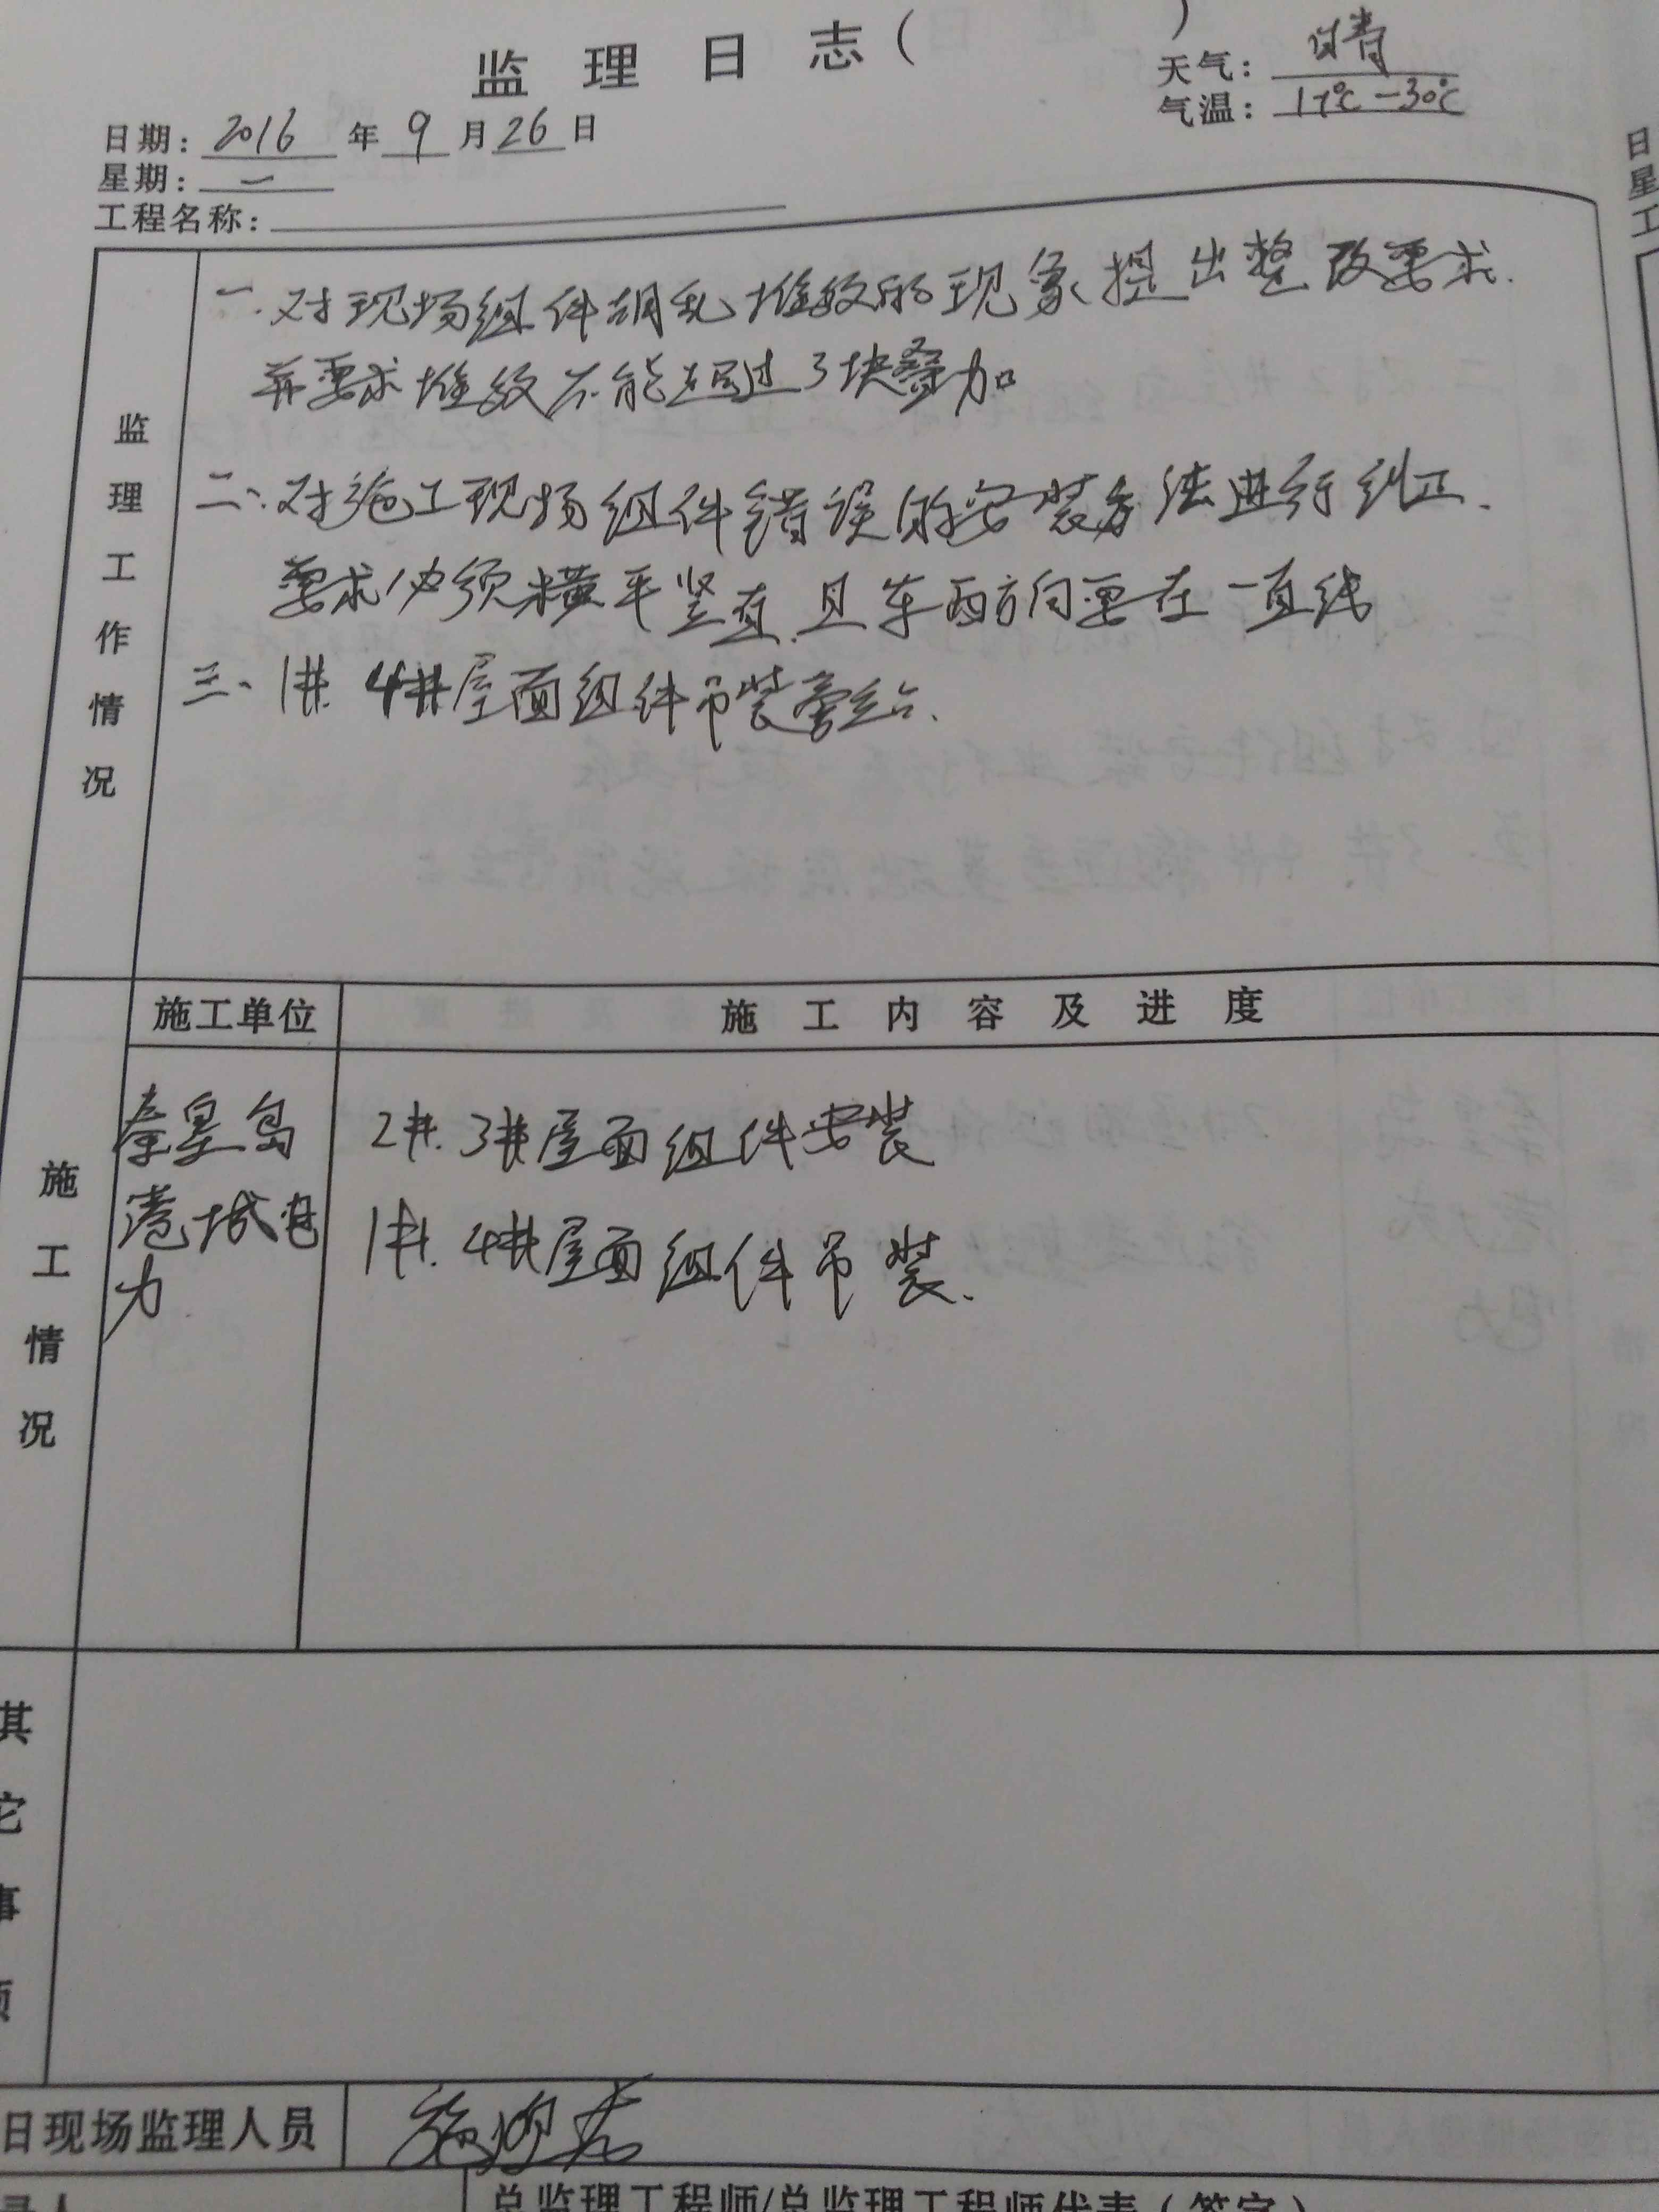 监理日志（ ）
天气：晴
气温：17℃-30℃
日期：2016年9月26日
星期：一
工程名称：
监理工作情况
一.对现场组件胡乱堆放的现象提出整改要求.
并要求堆放不能超过3块叠加
二、对施工现场组件错误的安装方法进行纠正.
要求必须横平竖直.且东西方向要在一直线
三、1#.4#屋面组件吊装旁站.
施工单位 施工内容及进度
施工情况
秦皇岛
港城电
力
2#.3#屋面组件安装
1#.4#屋面组件吊装.
其它事项
日现场监理人员
录人
总监理工程师/总监理工程师代表（签字）
日
星
工